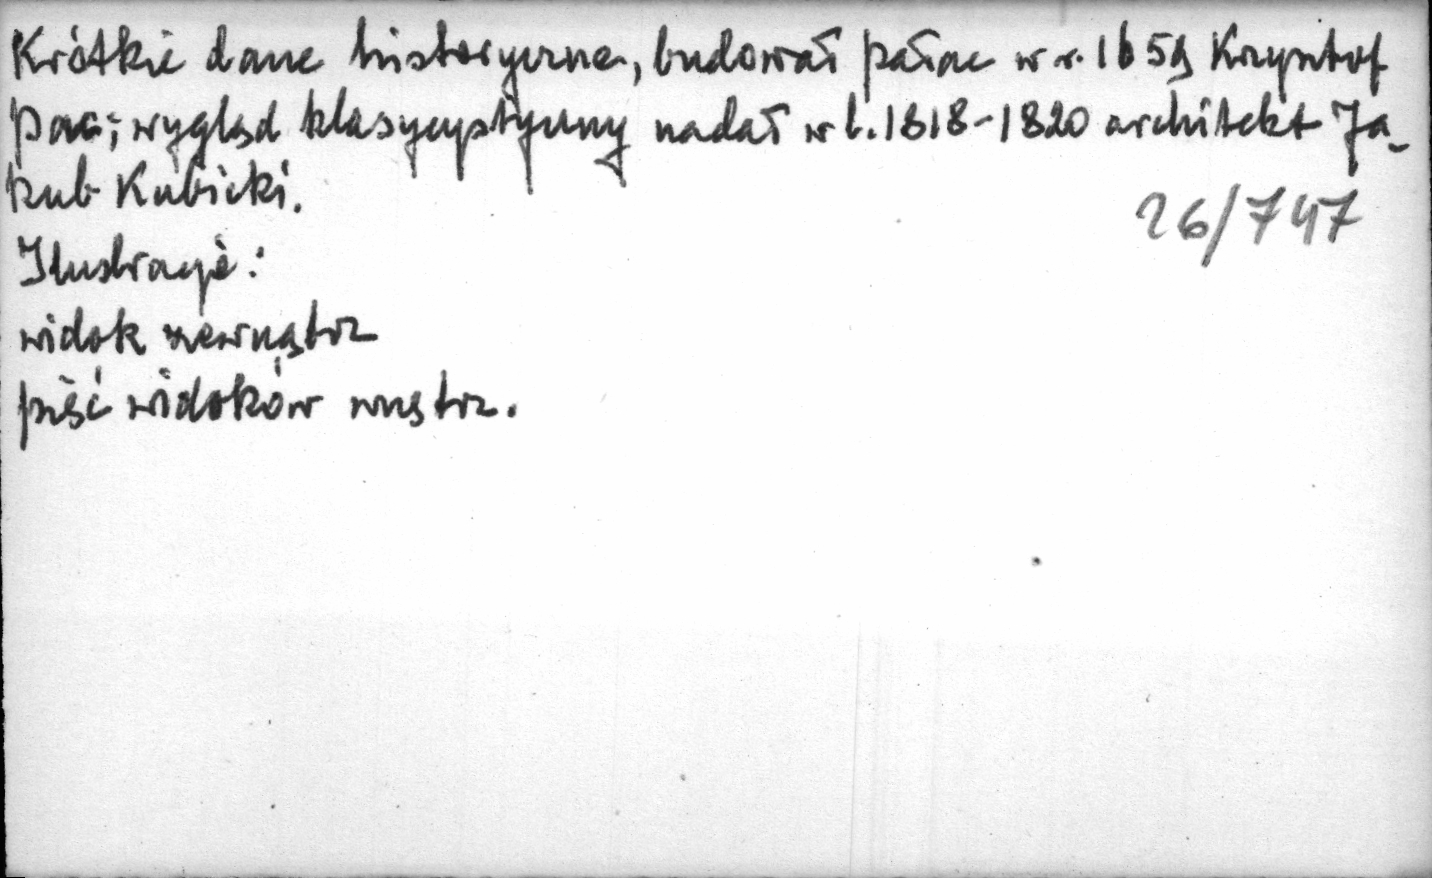 Krótkie dane historyczne, budował pałac w r. 1659 Krzysztof
Pac; wygląd klasycystyczny nadał w l. 1818-1820 architekt Ja-
kub Kubicki.
26/747
Ilustracje:
widok zewnątrz
pięć widoków wnętrz.